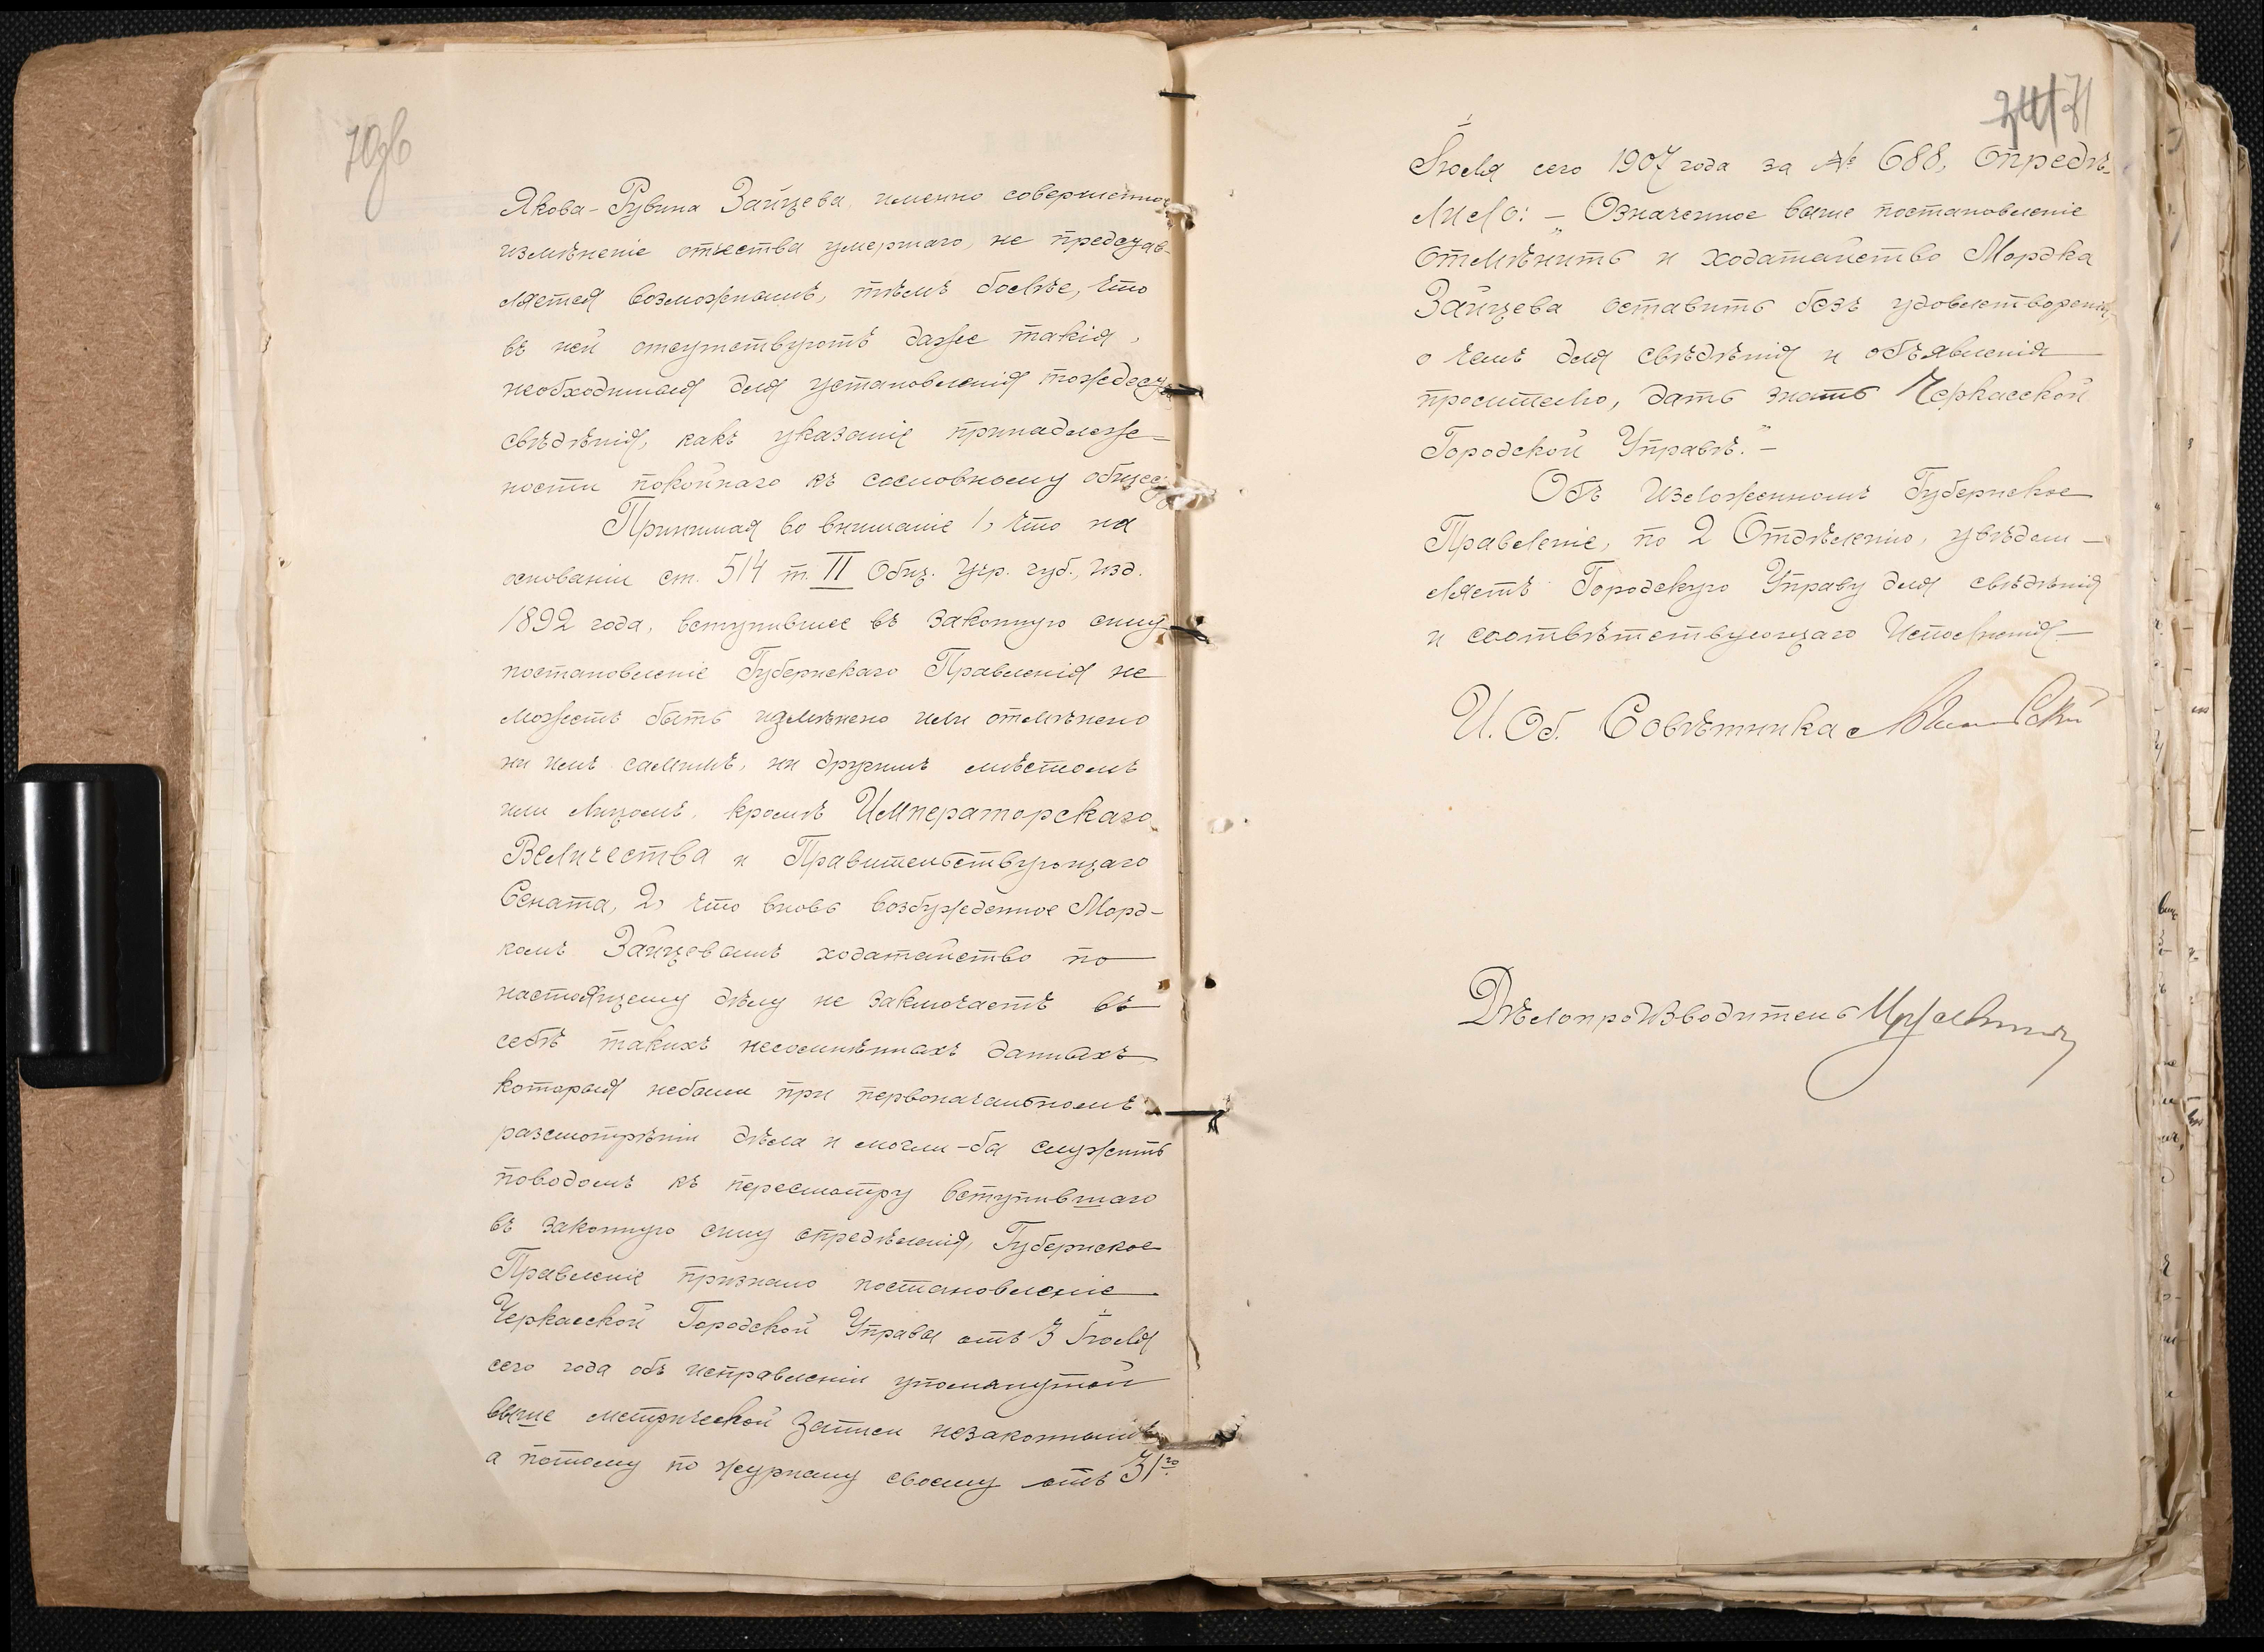 70об
Якова-Рувина Зайцева, именно совершенное
измѣненіе отчества умершаго, не представ-
ляется возможнымъ, тѣмъ болѣе, что
въ ней отсутствуютъ даже такія,
необходимыя для установленія тождеств
свѣдѣнія, какъ указаніе принадлеж-
ности покойнаго къ сословному общест
Принимая во вниманіе 1, что на
основаніи ст. 514 т. II Общ. Учр. губ., изд.
1892 года, вступившее въ законную силу
постановленіе Губернскаго Правленія не
можетъ быть измѣнено или отмѣнено
ни имъ самимъ, ни другимъ мѣстомъ
или лицомъ, кромѣ Императорскаго
Величества и Правительствующаго
Сената, 2, что вновь возбужденное Морд-
комъ Зайцевымъ ходатайство по
настоящему дѣлу не заключаетъ въ
себѣ такихъ несомнѣнныхъ данныхъ
которыя небыли при первоначальномъ
разсмотрѣніи дѣла и могли-бы служить
поводомъ къ пересмотру вступившаго
въ законную силу опредѣленія, Губернское
Правленіе признало постановленіе
Черкасской Городской Управы отъ 3 Іюля
сего года объ исправленіи упомянутой
выше метрической записи незаконнымъ
а потому по журналу своему отъ 31го
71
Іюля сего 1907 года за № 688, Опредѣ-
лило: - „Означенное выше постановленіе
отмѣнить и ходатайство Мордка
Зайцева оставить безъ удовлетворенія,
о чемъ для свѣдѣнія и объявленія
просителю, дать знать Черкасской
Городской Управѣ."-
Объ изложенномъ Губернское
Правленіе, по 2 Отдѣленію, увѣдом-
ляетъ Городскую Управу для свѣдѣнія
и соотвѣтствующаго исполненія-
И. Об. Совѣтника
Дѣлопроизводитель